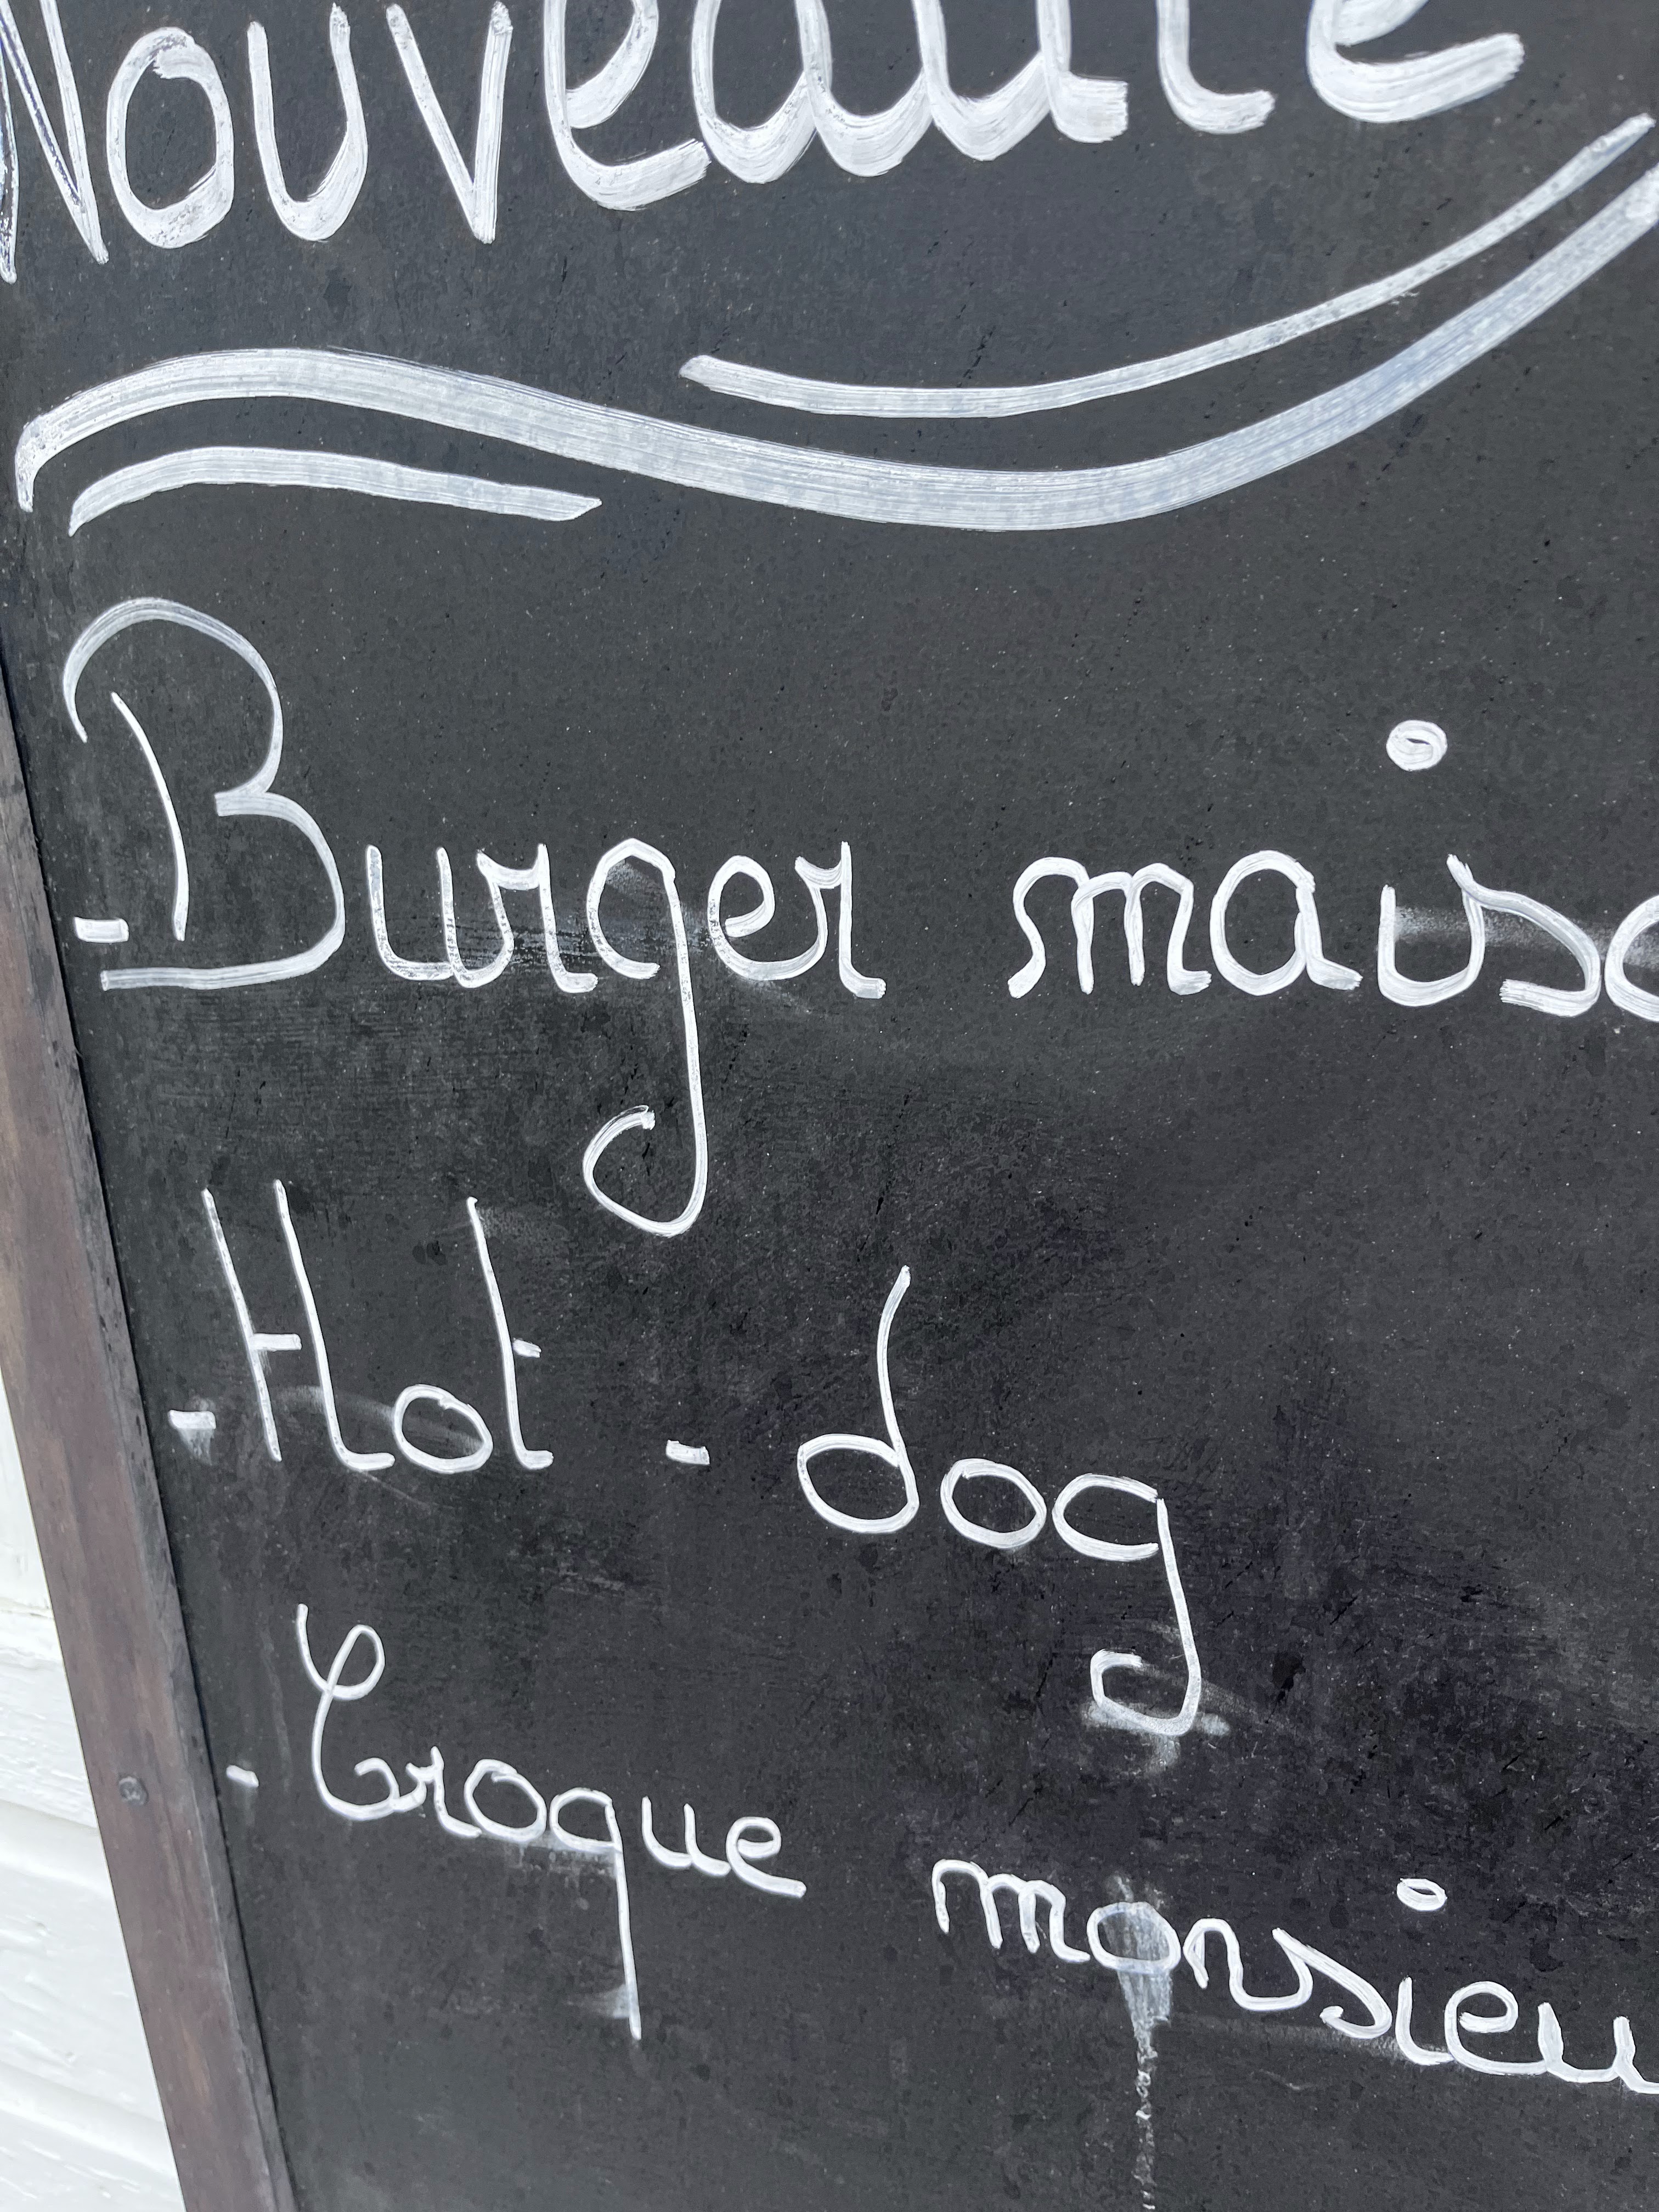 Nouveauté
- Burger maiso
- Hot - dog
- Croque monsieu